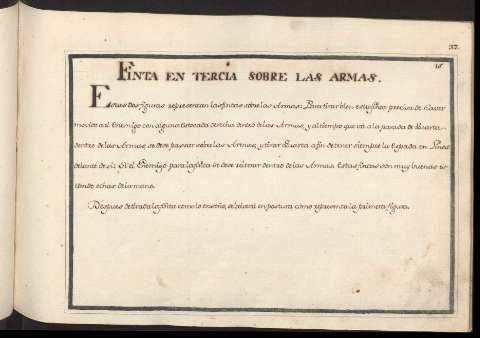 37.
16
FINTA EN TERCIA SOBRE LAS ARMAS.
Estas dos figuras representan las fintas sobre las Armas: Para tirar bien esta finta precisa de
al Enemigo con alguna Estocada derecha dentro de las Armas, y al tiempo que vá a la parada de Quarta
dentro de las Armas, se deve passar sobre las Armas, y tirar Quarta afin de tener siempre la Espada en Linea
delante de si: Si el Enemigo para la finta se deve tirar dentro de las Armas. Estas fintas son muy buenas
de la mano.
Despues de tirada la finta como lo enseño, se bolverá en postura como representa la primera figura.